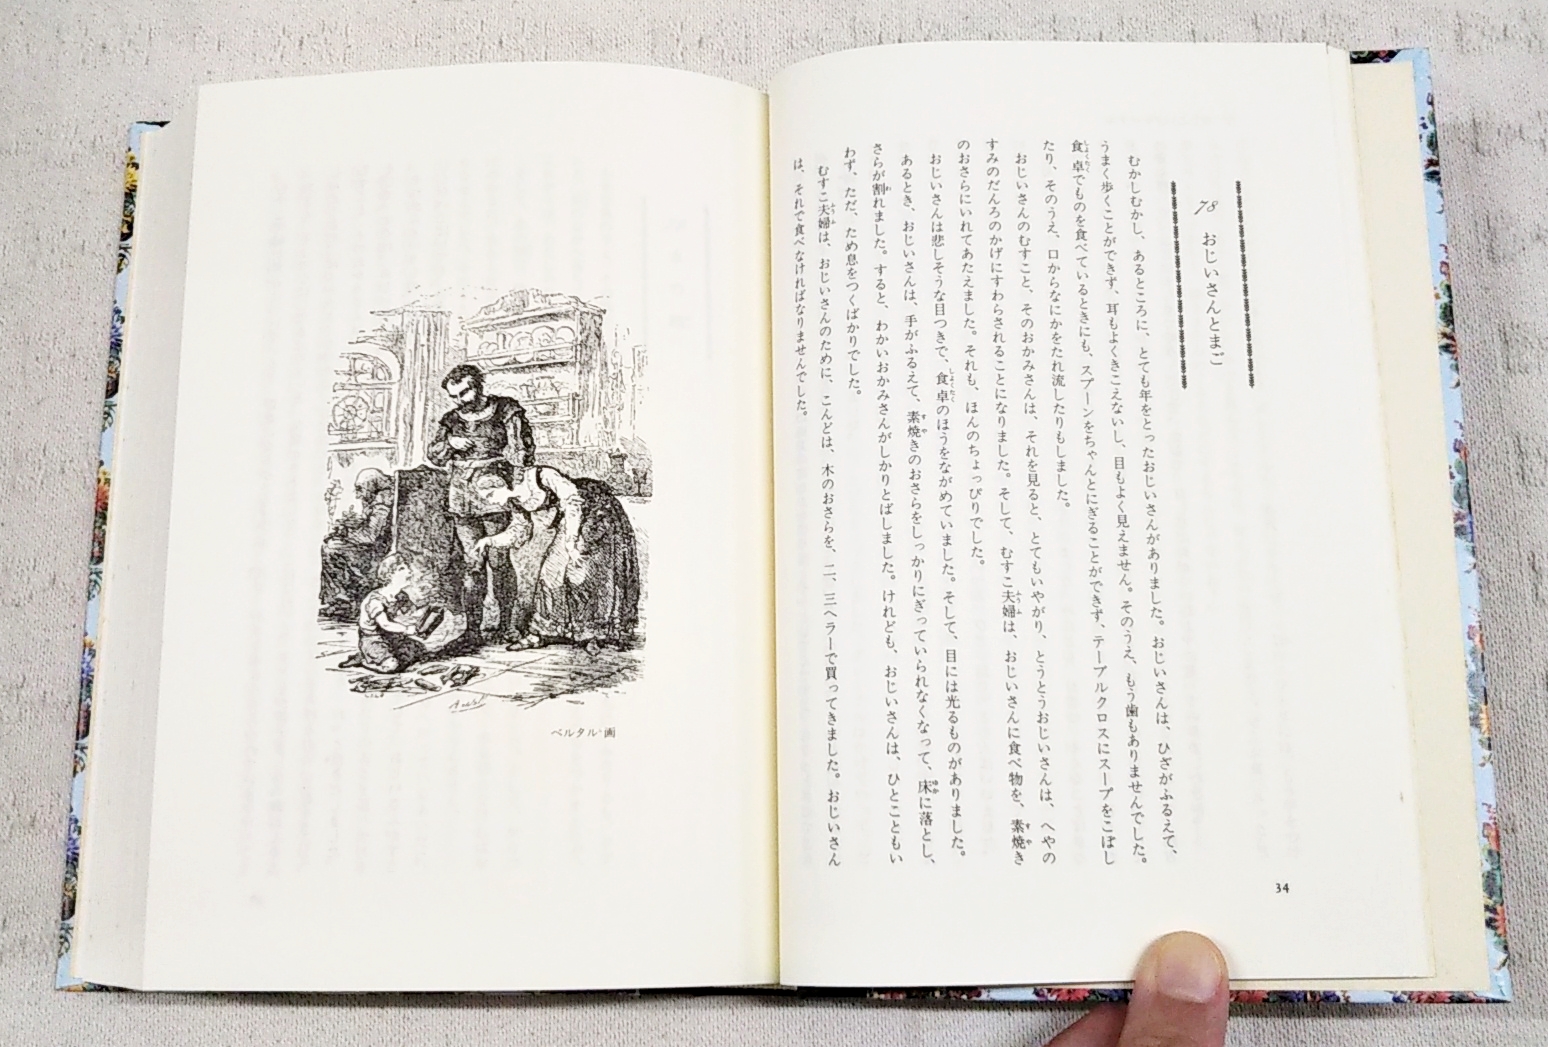 78 おじいさんとまご
むかしむかし、あるところに、とても年をとったおじいさんがありました。おじいさんは、ひざがふるえて、
うまく歩くことができず、耳もよくきこえないし、目もよく見えません。そのうえ、もう歯もありませんでした。
食卓でものを食べているときにも、スプーンをちゃんとにぎることができず、テーブルクロスにスープをこぼし
たり、そのうえ、口からなにかをたれ流したりもしました。
おじいさんのむすこと、そのおかみさんは、それを見ると、とてもいやがり、とうとうおじいさんは、へやの
すみのだんろのかげにすわらされることになりました。そして、むすこ夫婦は、おじいさんに食べ物を、素焼き
のおさらにいれてあたえました。それも、ほんのちょっぴりでした。
おじいさんは悲しそうな目つきで、食卓のほうをながめていました。そして、目には光るものがありました。
あるとき、おじいさんは、手がふるえて、素焼きのおさらをしっかりにぎっていられなくなって、床に落とし、
さらが割れました。すると、わかいおかみさんがしかりとばしました。けれども、おじいさんは、ひとこともい
わず、ただ、ため息をつくばかりでした。
むすこ夫婦は、おじいさんのために、こんどは、木のおさらを、二、三ヘラーで買ってきました。おじいさん
は、それで食べなければなりませんでした。
34
ベルタル・画